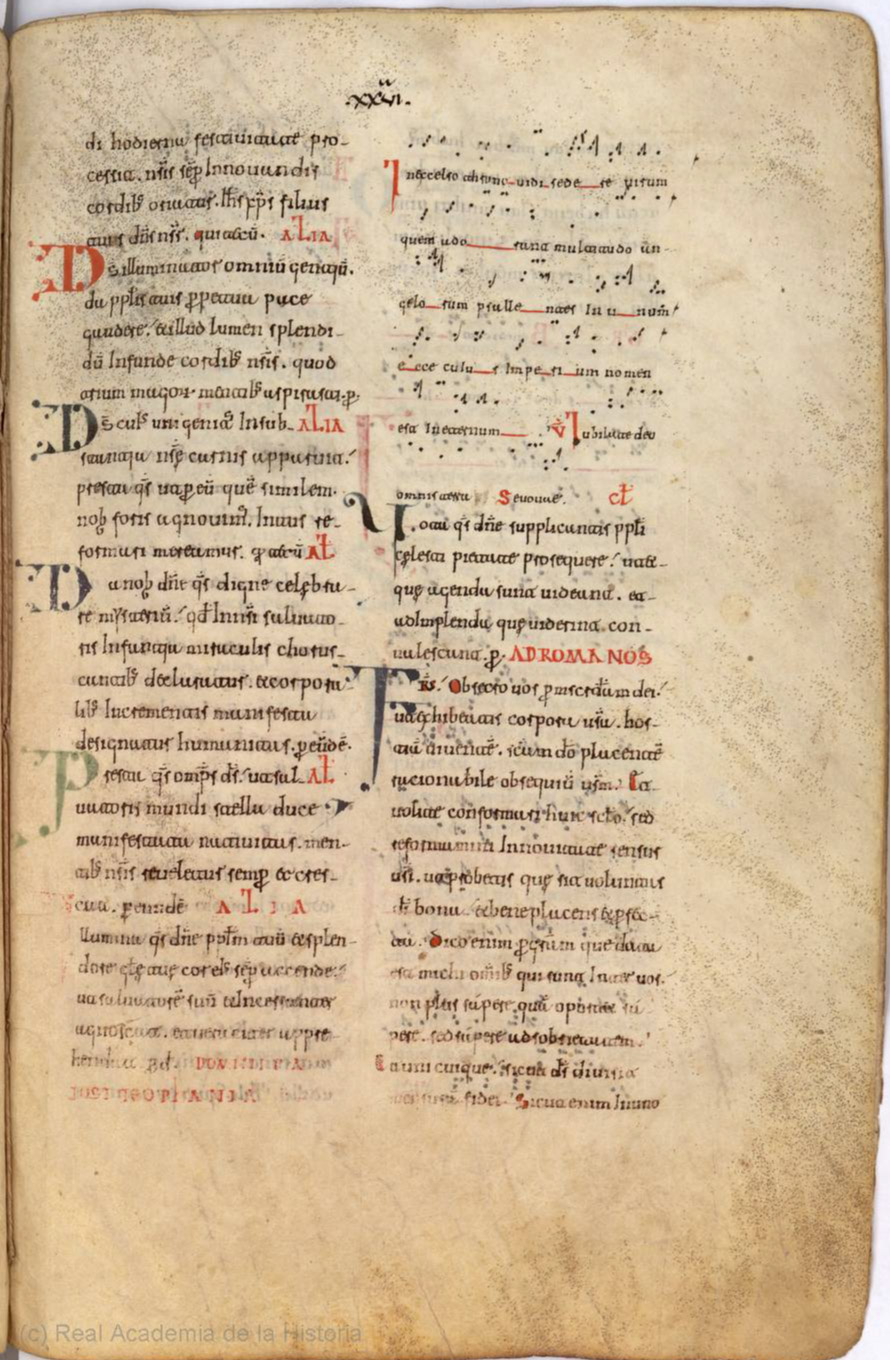 xxvi.
di hodierna festiuitate pro-
cessit. nr̄is sēp Innouandis
cordib; ortatus. Ih̄s xp̄s filius
tuus dn̄s nr̄. qui tecū. ALIA
Ds̄ illuminator omniū gentiū.
da ppl̄is tuis ꝑpetua pace
gaudere. & illud lumen splendi-
dū Infunde cordib; nr̄is. quod
trium magor. mentib; aspirasti. ꝑ.
Ds̄ cuī unigenit' In sub- ALIA
stantia nr̄e carnis apparuit.
presta qs̄ ut ꝑ eū quē similem
nob̄ foris agnouim'. Intus re-
formari mereamur. q̄ tecū AL̄
Da nob̄ dn̄e qs̄ digne celebra-
re mysteriū. qd̄ In nr̄i saluato-
ris Infantia miraculis chorus-
cantib; declaratur. & corpora-
lib; Incrementis manifesta
designatur humanitas. ꝑ eūdē.
Presta qs̄ omp̄s ds̄. ut sal- AL̄
uatoris mundi stella duce
manifestata natiuitas. men-
tib; nr̄is reueletur semꝑ & cres-
cat. ꝑ eundē ALIA
Illumina qs̄ dn̄e ppl̄m tuū & splen-
dore gl̄ę tuę cor ei' sēp accende.
ut saluatorē suū & Incessanter
agnoscat. & ueraciter appre-
hendat. DOMINICA
POST TEOPHANIA
In excelso throno uidi sede re uirum
quem ado rant multitudo an-
gelo rum psalle ntes In u num
ecce cuiu s Impe ri um nomen
est In eternum V̄ Iubilate deo
omnis terra Seuouae. cł̄
Vota qs̄ dn̄e supplicantis ppl̄i
cęlesti pietate prosequere. ut &
quę agenda sunt uideant. &
ad Implenda quę uiderint con-
ualescant. ꝑ. AD ROMANOS
Fr̄s. Obsecro uos ꝑ misc̄dıam dei.
ut exhibeatis corpora ur̄a. hos-
tiā uiuentē. sc̄am dō placentē
racionabile obsequiū ur̄m.
nolite conformari huic sc̄lo. sed
reformamini In nouitate sensus
ur̄i. ut ꝓbetis quę sit uoluntas
dī bona. & beneplacens & ꝑfec-
ta. Dico enim ꝑ gr̄am que data
est michi om̄ib; qui sunt Inter uos.
non plus sapere. quā oport&
sapere. sed sapere ad sobrietatem.
& unicuique. sicut ds̄ diuisit
mensurā fidei. Sicut enim In uno
(c) Real Academia de la Historia